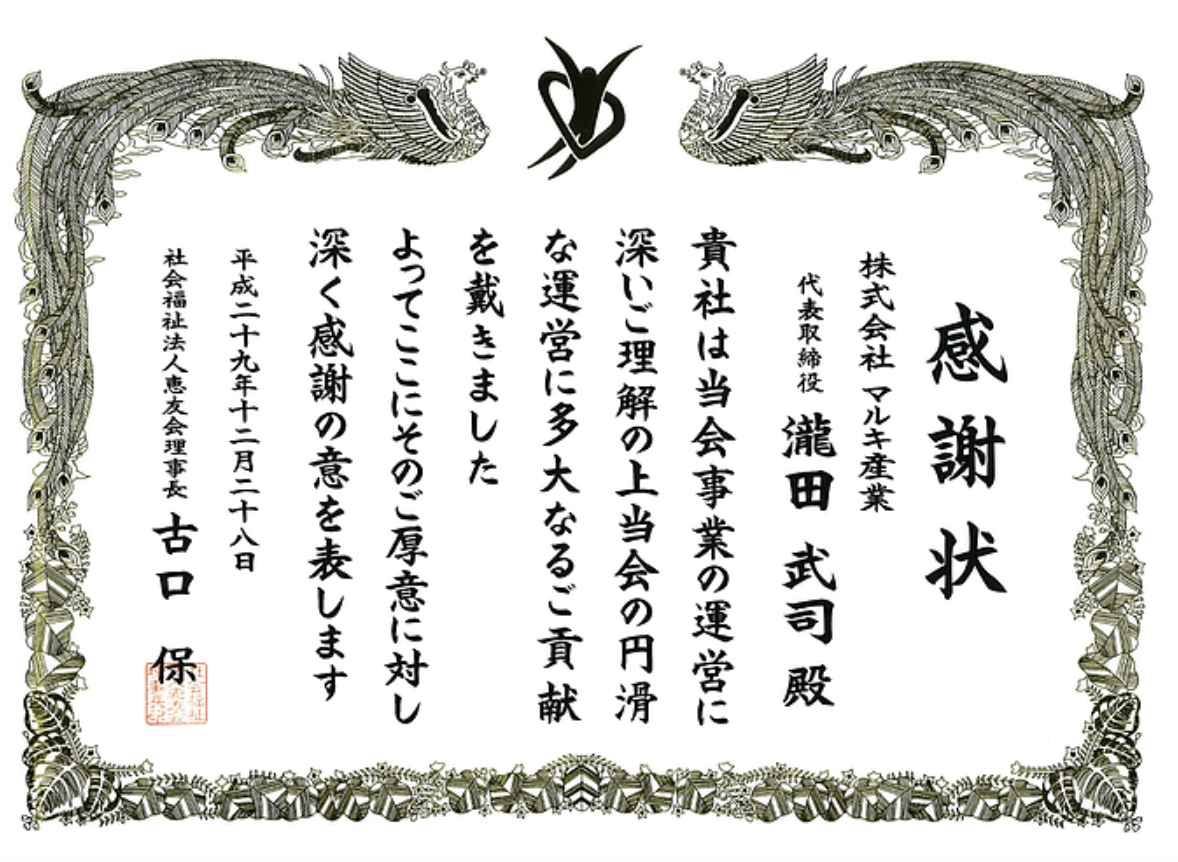 感謝状
株式会社 マルキ産業
代表取締役 瀧田 武司 殿
貴社は当会事業の運営に
深いご理解の上当会の円滑
な運営に多大なるご貢献
を戴きました
よってここにそのご厚意に対し
深く感謝の意を表します
平成二十九年十二月二十八日
社会福祉法人恵友会理事長 古口 保